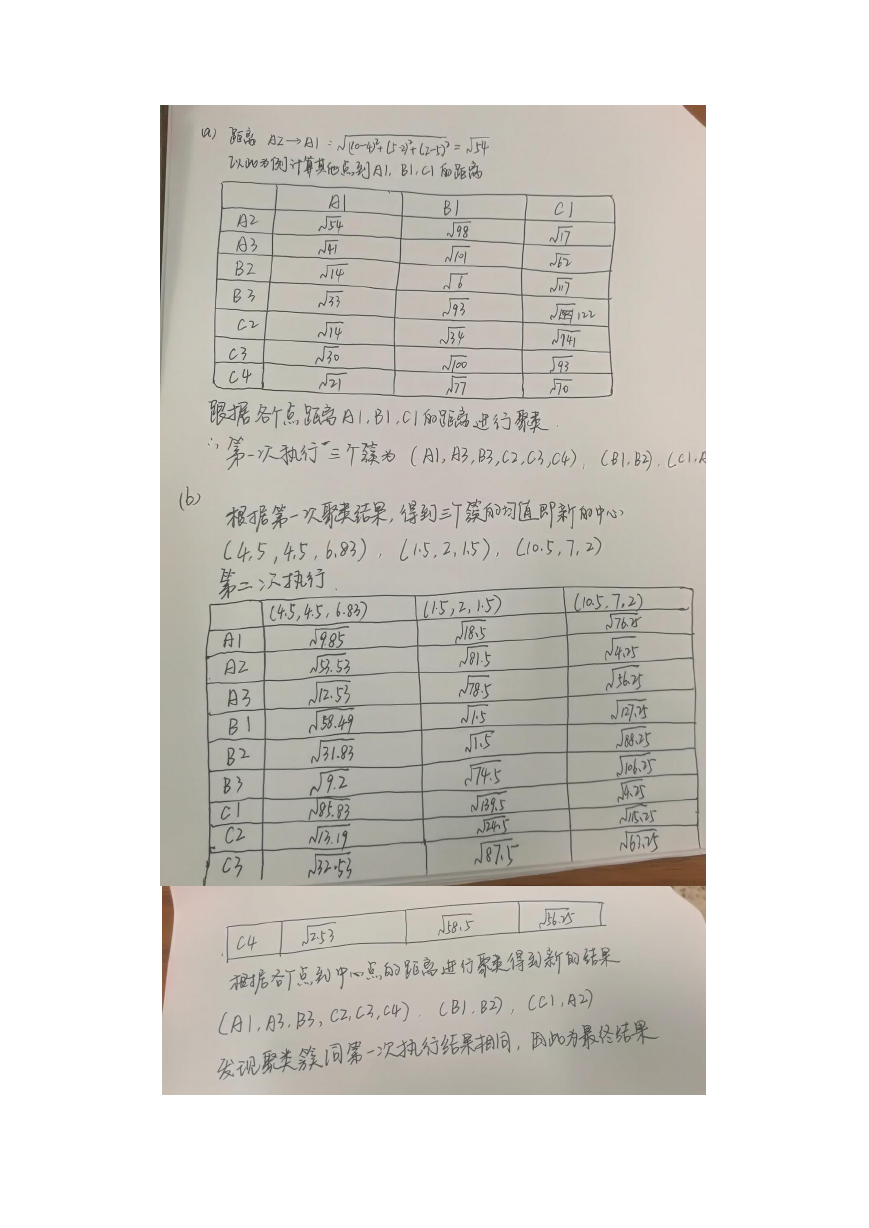 (a) 距离 A2→A1 : √(10-4)²+(5-2)²+(2-5)² = √54
以此为例计算其他点到A1, B1, C1 的距离
A1 B1 C1
A2 √54 √98 √17
A3 √41 √101 √62
B2 √14 √6 √117
B3 √33 √93 122
C2 √14 √34 √141
C3 √30 √100 √93
C4 √21 √77 √70
跟据各个点距离A1,B1,C1的距离进行聚类.
∴ 第一次执行三个簇为 (A1,A3,B3,C2,C3,C4), (B1,B2), (C1,A
(b)
根据第一次聚类结果,得到三个簇的均值即新的中心
(4.5,4.5,6.83), (1.5,2,1.5), (10.5,7,2)
第二次执行.
(4.5,4.5,6.83) (1.5,2,1.5) (10.5,7,2)
A1 √9.85 √18.5 √76.25
A2 √53.53 √81.5 √4.25
A3 √12.53 √78.5 √56.25
B1 √58.49 √1.5 √127.25
B2 √31.83 √1.5 √88.25
B3 √9.2 √74.5 √106.25
C1 √85.83 √139.5 √4.25
C2 √13.19 √24.5 √115.25
C3 √32.53 √87.5 √63.25
C4 √2.53 √58.5 √56.25
根据各个点到中心点的距离进行聚类得到新的结果
(A1,A3,B3,C2,C3,C4). (B1,B2), (C1,A2)
发现聚类簇同第一次执行结果相同,因此为最终结果